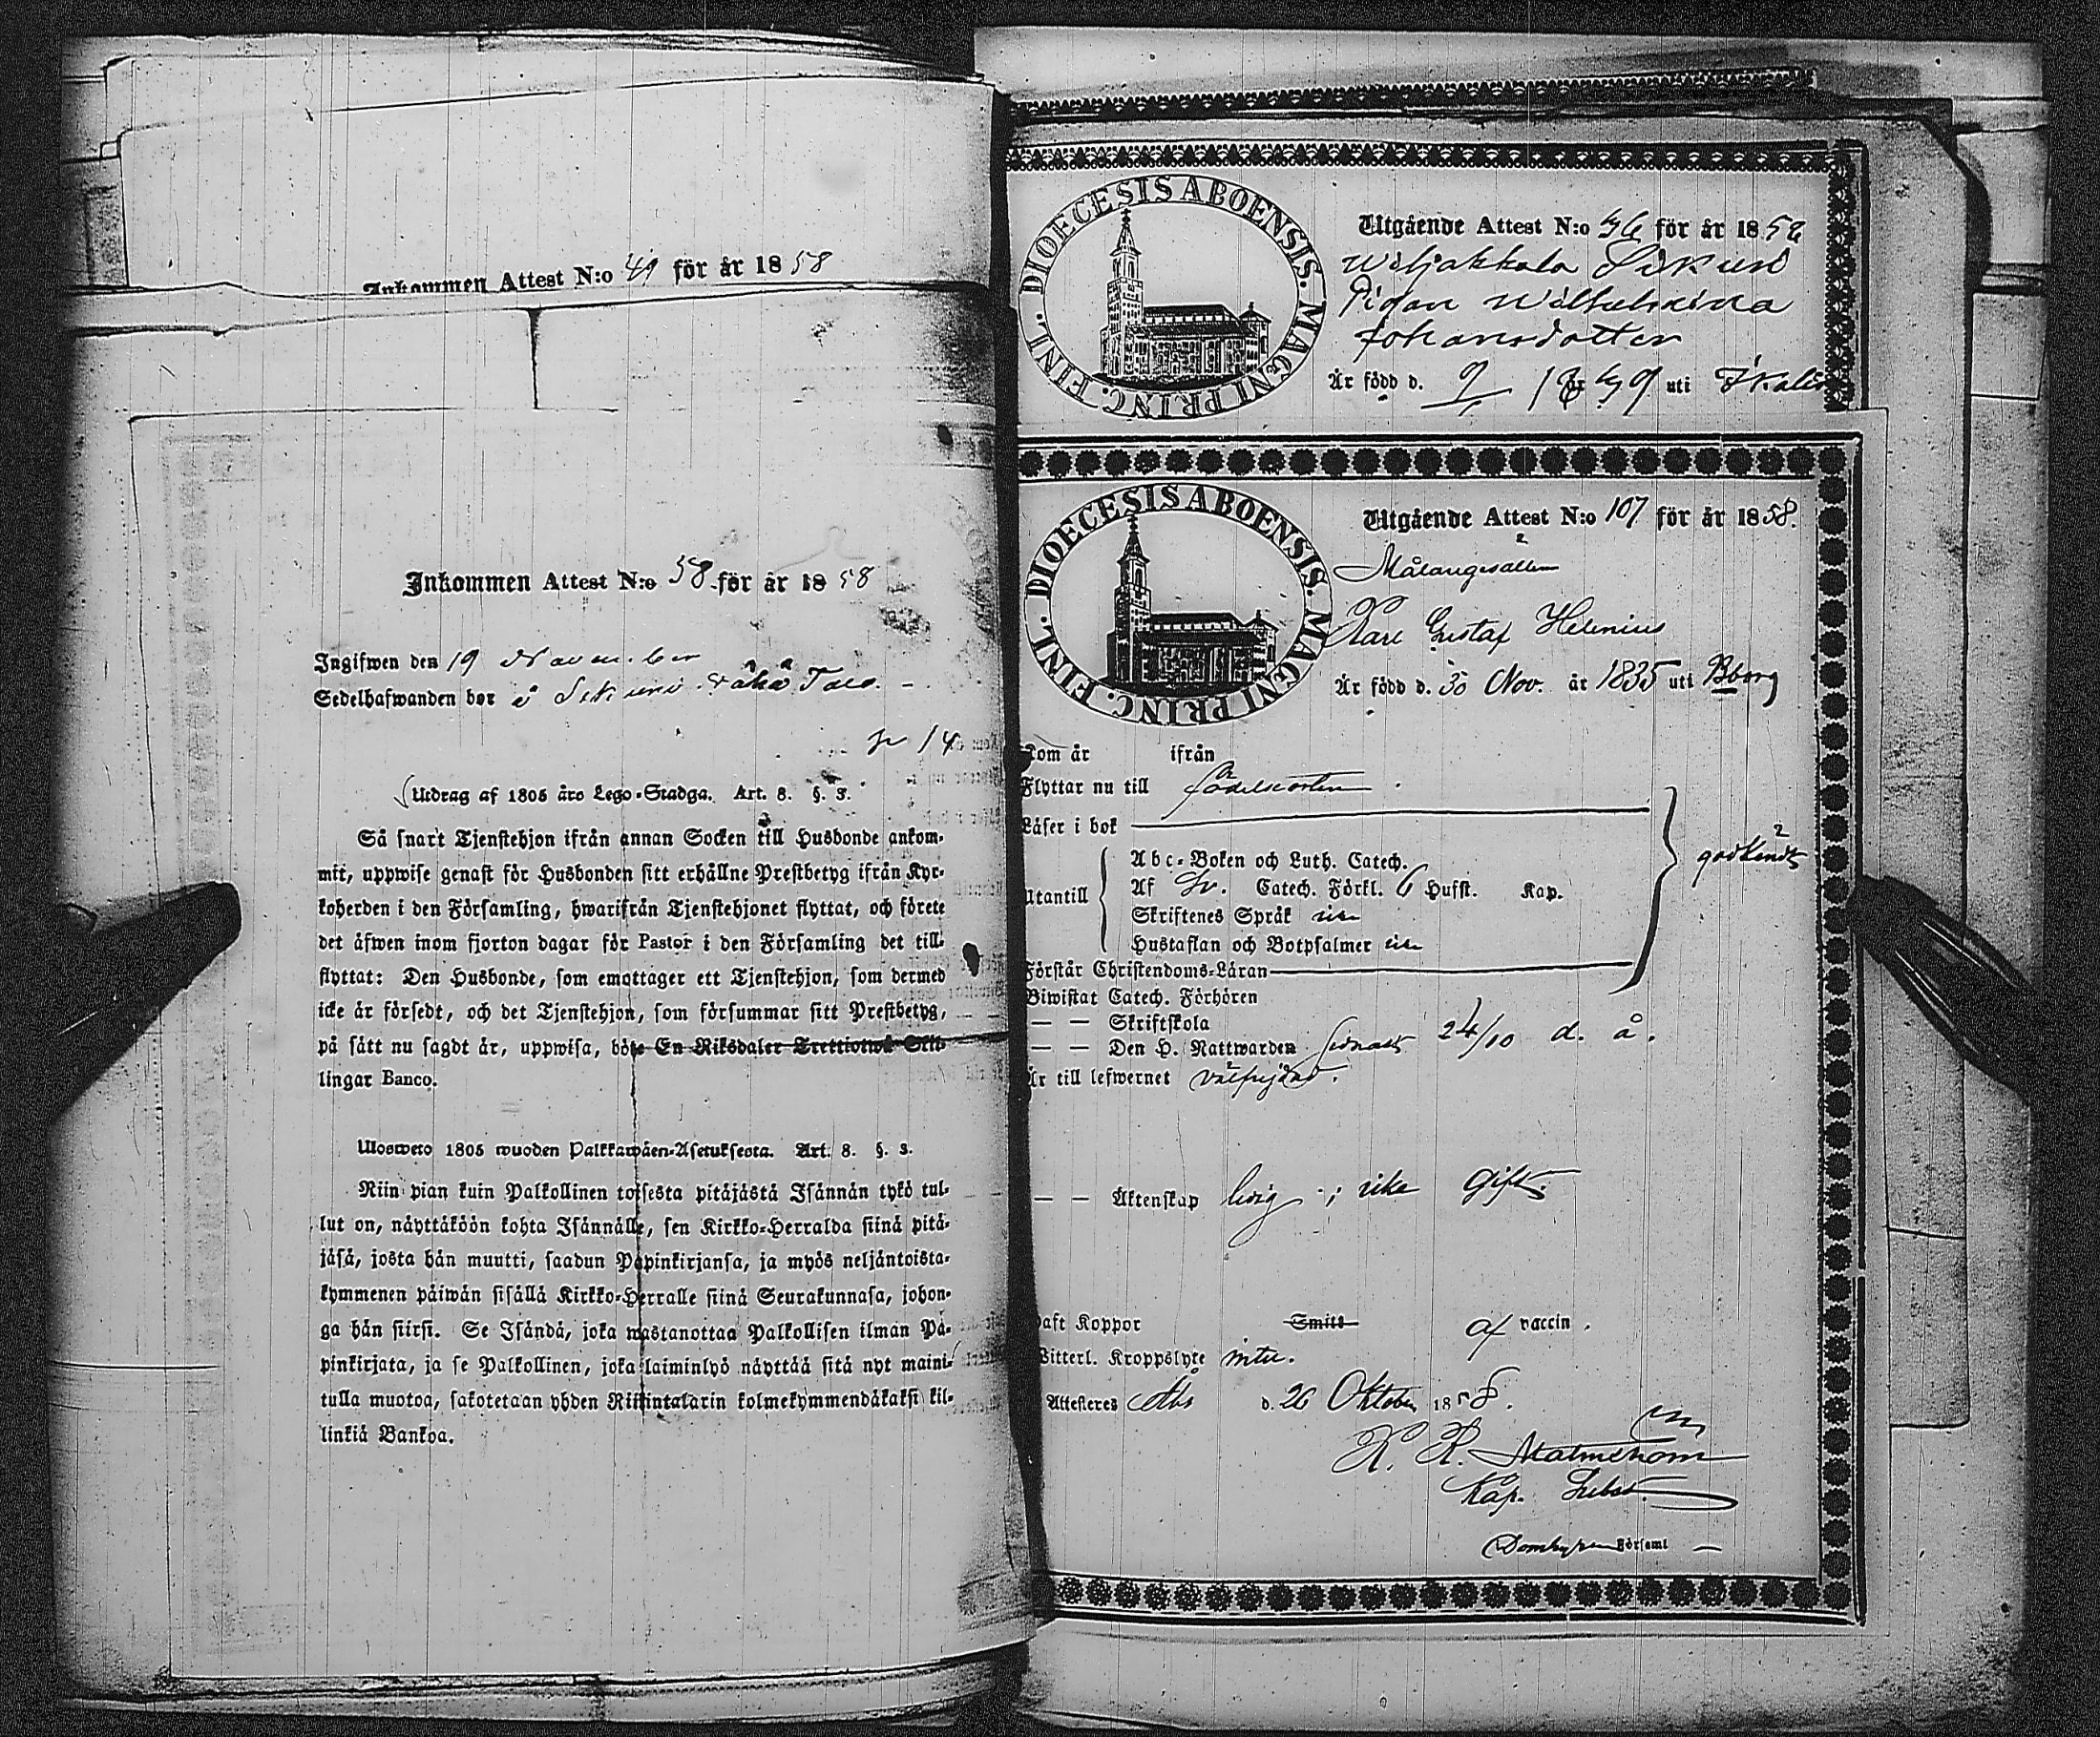 Inkommen Attest N:o 49 för år 1858
Inkommen Attest N:o 58 för år 1858
Ingifwen den 19 November
Sedelhafwanden bor i
p 14
Utdrag af 1805 års Lego-Stadga. Art. 8. §. 3.
Så snart Tjenstehjon ifrån annan Socken till Husbonde ankom-
mit, uppwise genast för Husbonden sitt erhållne Prestbetyg ifrån Kyr-
koherden i den Församling, hwarifrån Tjenstehjonet flyttat, och förete
det äfwen inom fjorton dagar för Pastor i den Församling det till-
flyttat: Den Husbonde, som emottager ett Tjenstehjon, som dermed
icke är försedt, och det Tjenstehjon, som försummar sitt Prestbetyg,
på sätt nu sagdt är, uppwisa, böte En Riksdaler Trettiotwå Skil-
lingar Banco.
Ulosweto 1805 wuoden Palkkawäen-Asetuksesta. Art. 8. §. 3.
Niin pian kuin Palkollinen toisesta pitäjästä Isännän tykö tul-
lut on, näyttäköön kohta Isännälle, sen Kirkko-Herralda siinä pitä-
jäsä, josta hän muutti, saadun Papinkirjansa, ja myös neljäntoista-
kymmenen päiwän sisällä Kirkko-Herralle siinä Seurakunnasa, johon-
ga hän siirsi. Se Isändä, joka wastanottaa Palkollisen ilman Pa-
pinkirjata, ja se Palkollinen, joka laiminlyö näyttää sitä nyt maini-
tulla muotoa, sakotetaan yhden Riikintalarin kolmekymmendäkaksi kil-
linkiä Bankoa.
DIOECESIS ABOENSIS. MAGNI PRINC. FINL.
Utgående Attest N:o 36 för år 1858
Wiljakkala
Pigan Wilhelmina
Johansdotter
Är född d. 9/ 18 39 uti Ikalis
DIOECESIS ABOENSIS. MAGNI PRINC. FINL.
Utgående Attest N:o 107 för år 1858.
Målaregesällen
Karl Gustaf Helenius
Är född d. 30 Nov. år 1835 uti Bborg
Kom år ifrån
Flyttar nu till födelseorten.
Läser i bok
Abc-Boken och Luth. Catech.
Utantill Af Sv. Catech. Förkl. 6 Hufst. Kap.
Skriftenes Språk
Hustaflan och Botpsalmer
godkändt
Förstår Christendoms-Läran
Biwistat Catech. Förhören
— — Skriftskola
— — Den H. Nattwarden sednast 24/10 d. å.
Är till lefwernet välfrejdad.
— — Äktenskap ledig; icke gift.
Haft Koppor Smitt af vaccin.
Witterl. Kroppslyte intet.
Attesteres Åbo d. 26 Oktober 1858.
K. K. Malmström
Kap. Subst.
Domkyrko Församl